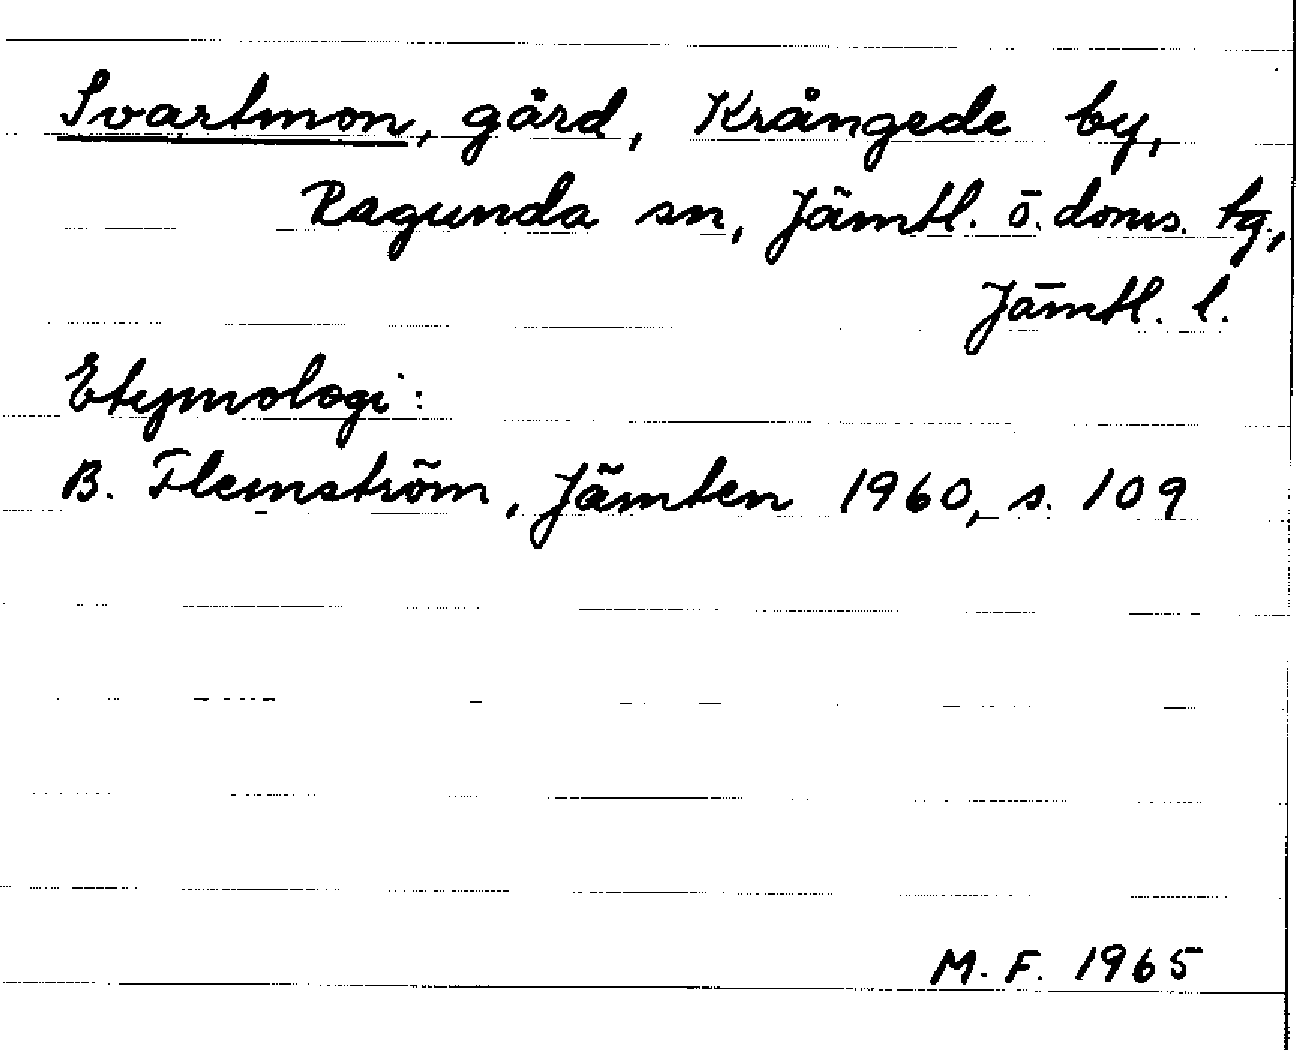 Svartmon, gård, Krångede by,
Ragunda sn, Jämtl. ö. doms. tg,
Jämtl. l.
Etymologi:
B. Flemström, Jämten 1960, s. 109
M. F. 1965